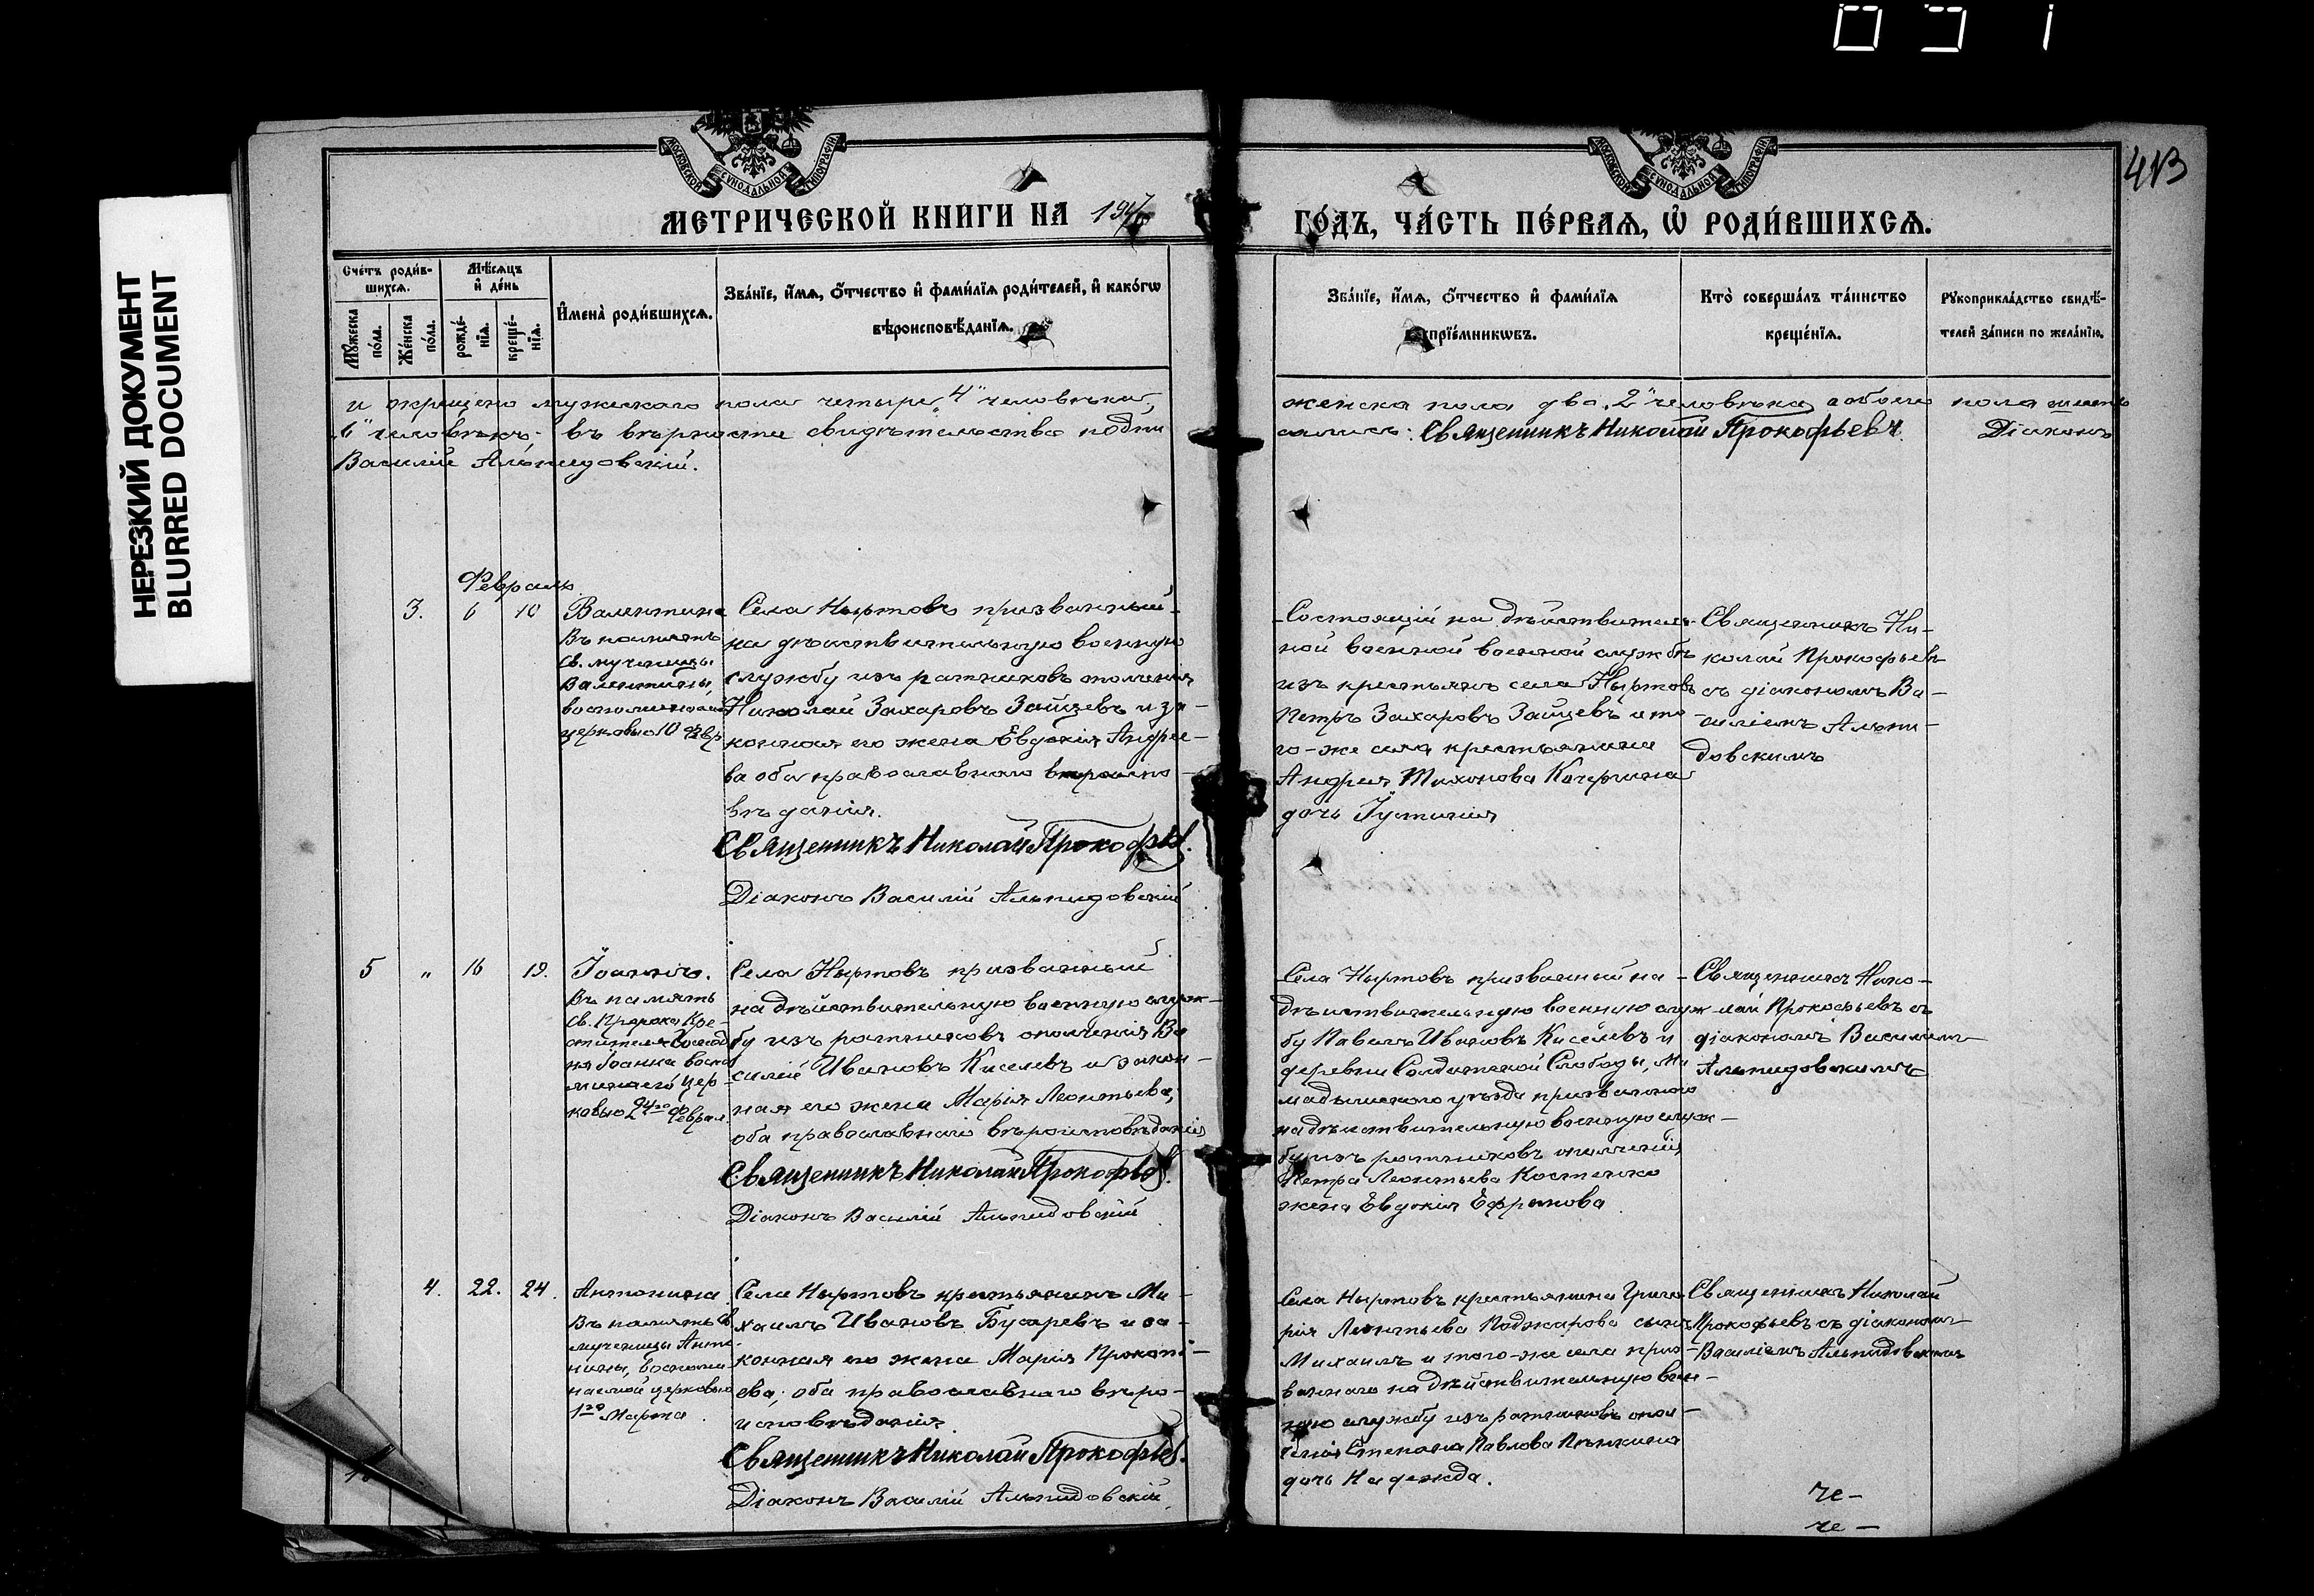 НЕРЕЗКИЙ ДОКУМЕНТ
BLURRED DOCUMENT
413
МОСКОВСКОЙ СѴНОДАЛЬНОЙ ТИПОГРАФІИ
МОСКОВСКОЙ СѴНОДАЛЬНОЙ ТИПОГРАФІИ
МЕТРИЧЕСКОЙ КНИГИ НА
ГО́ДЪ, ЧА́СТЬ ПЕ́РВАѦ, Ѡ҆ РОДИ́ВШИХСѦ.
Сче́тъ роди́в-
шихсѧ.
Мѣ́сѧцъ
и҆ де́нь
Мꙋ́жеска
по́ла.
Же́нска
по́ла.
рожде́-
нїѧ.
креще́-
нїѧ.
И҆мена̀ роди́вшихсѧ.
Зва́нїе, и҆́мѧ, ѻ҆́тчество и҆ фами́лїѧ роди́телей, и҆ како́гѡ
вѣроисповѣ́данїѧ.
Зва́нїе, и҆́мѧ, ѻ҆́тчество и҆ фами́лїѧ
прїе́мникѡвъ.
Кто̀ соверша́лъ та́инство
креще́нїѧ.
Рꙋкоприкла́дство свидѣ́-
телей за́писи по жела́нїю.
и окрещено мужескаго пола четыре „4" человѣка,
„6" человѣкъ; въ вѣрности свидѣтельства подпи
Василій Альпидовскій.
женска пола два „2" человѣка, а обоего пола шесть
сались: Священникъ Николай Прокофьевъ. Діаконъ
Февраль
3. 6 10
Валентина
Въ память
св. мученицы
Валентины,
церковью 10 Февр
Села Ныртовъ призванный
на дѣйствительную военную
службу изъ ратниковъ ополченія
Николай Захаровъ Зайцевъ и за-
конная его жена Евдокія Андрее-
ва оба православнаго вѣроиспо-
вѣданія.
Священникъ Николай Прокофьев.
Діаконъ Василій Альпидовскій
Состоящій на дѣйствитель-
ной военной военной службѣ
изъ крестьянъ села Ныртовъ
Петръ Захаровъ Зайцевъ и то-
го-же села крестьянина
Андрея Тихонова Кочергина
дочь Іустинія
Священникъ Ни-
колай Прокофьевъ
съ діакономъ Ва-
силіемъ Альпи-
довскимъ
5 „ 16 19.
Іоаннъ.
Въ память
св. Пророка Кре-
стителя Господ
ня Іоанна воспо
минаем. цер-
ковью 24го Феврал.
Села Ныртовъ призванный
на дѣйствительную военную служ-
бу изъ ратниковъ ополченія Ва
силій Ивановъ Киселевъ и закон-
ная его жена Марія Леонтьева;
оба православнаго вѣроисповѣданія
Священникъ Николай Прокофьев.
Діаконъ Василій Альпидовскій
Села Ныртовъ призванный на
дѣйствительную военную служ
бу Павелъ Ивановъ Киселевъ и
деревни Солдатской Слободы, Ма
мадышскаго уѣзда призваннаго
на дѣйствительную военную служ-
бу изъ ратниковъ ополченія
Петра Леонтьева Костенко
жена Евдокія Ефремова
Священникъ Нико-
лай Прокофьевъ съ
діакономъ Василіемъ
Альпидовскимъ
4. 22. 24.
Антонина
Въ память св
мученицы Анто-
нины, воспоми
наемой церковью
1го Марта.
Села Ныртовъ крестьянинъ Ми-
хаилъ Ивановъ Бухаревъ и за-
конная его жена Марія Прокопі-
ева; оба православнаго вѣро-
исповѣданія
Священникъ Николай Прокофьев.
Діаконъ Василій Альпидовскій.
Села Ныртовъ крестьянина Григо
рія Леонтьева Поджарова сынъ
Михаилъ и того-же села приз-
ваннаго на дѣйствительную воен-
ную службу изъ ратниковъ опол-
ченія Степана Павлова Пѣнкина
дочь Надежда.
Священникъ Николай
Прокофьевъ съ діакономъ
Василіемъ Альпидовскимъ
че-
че-